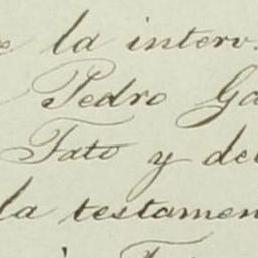 e la interv.
Pedro Ga
Tato y del
la testamen